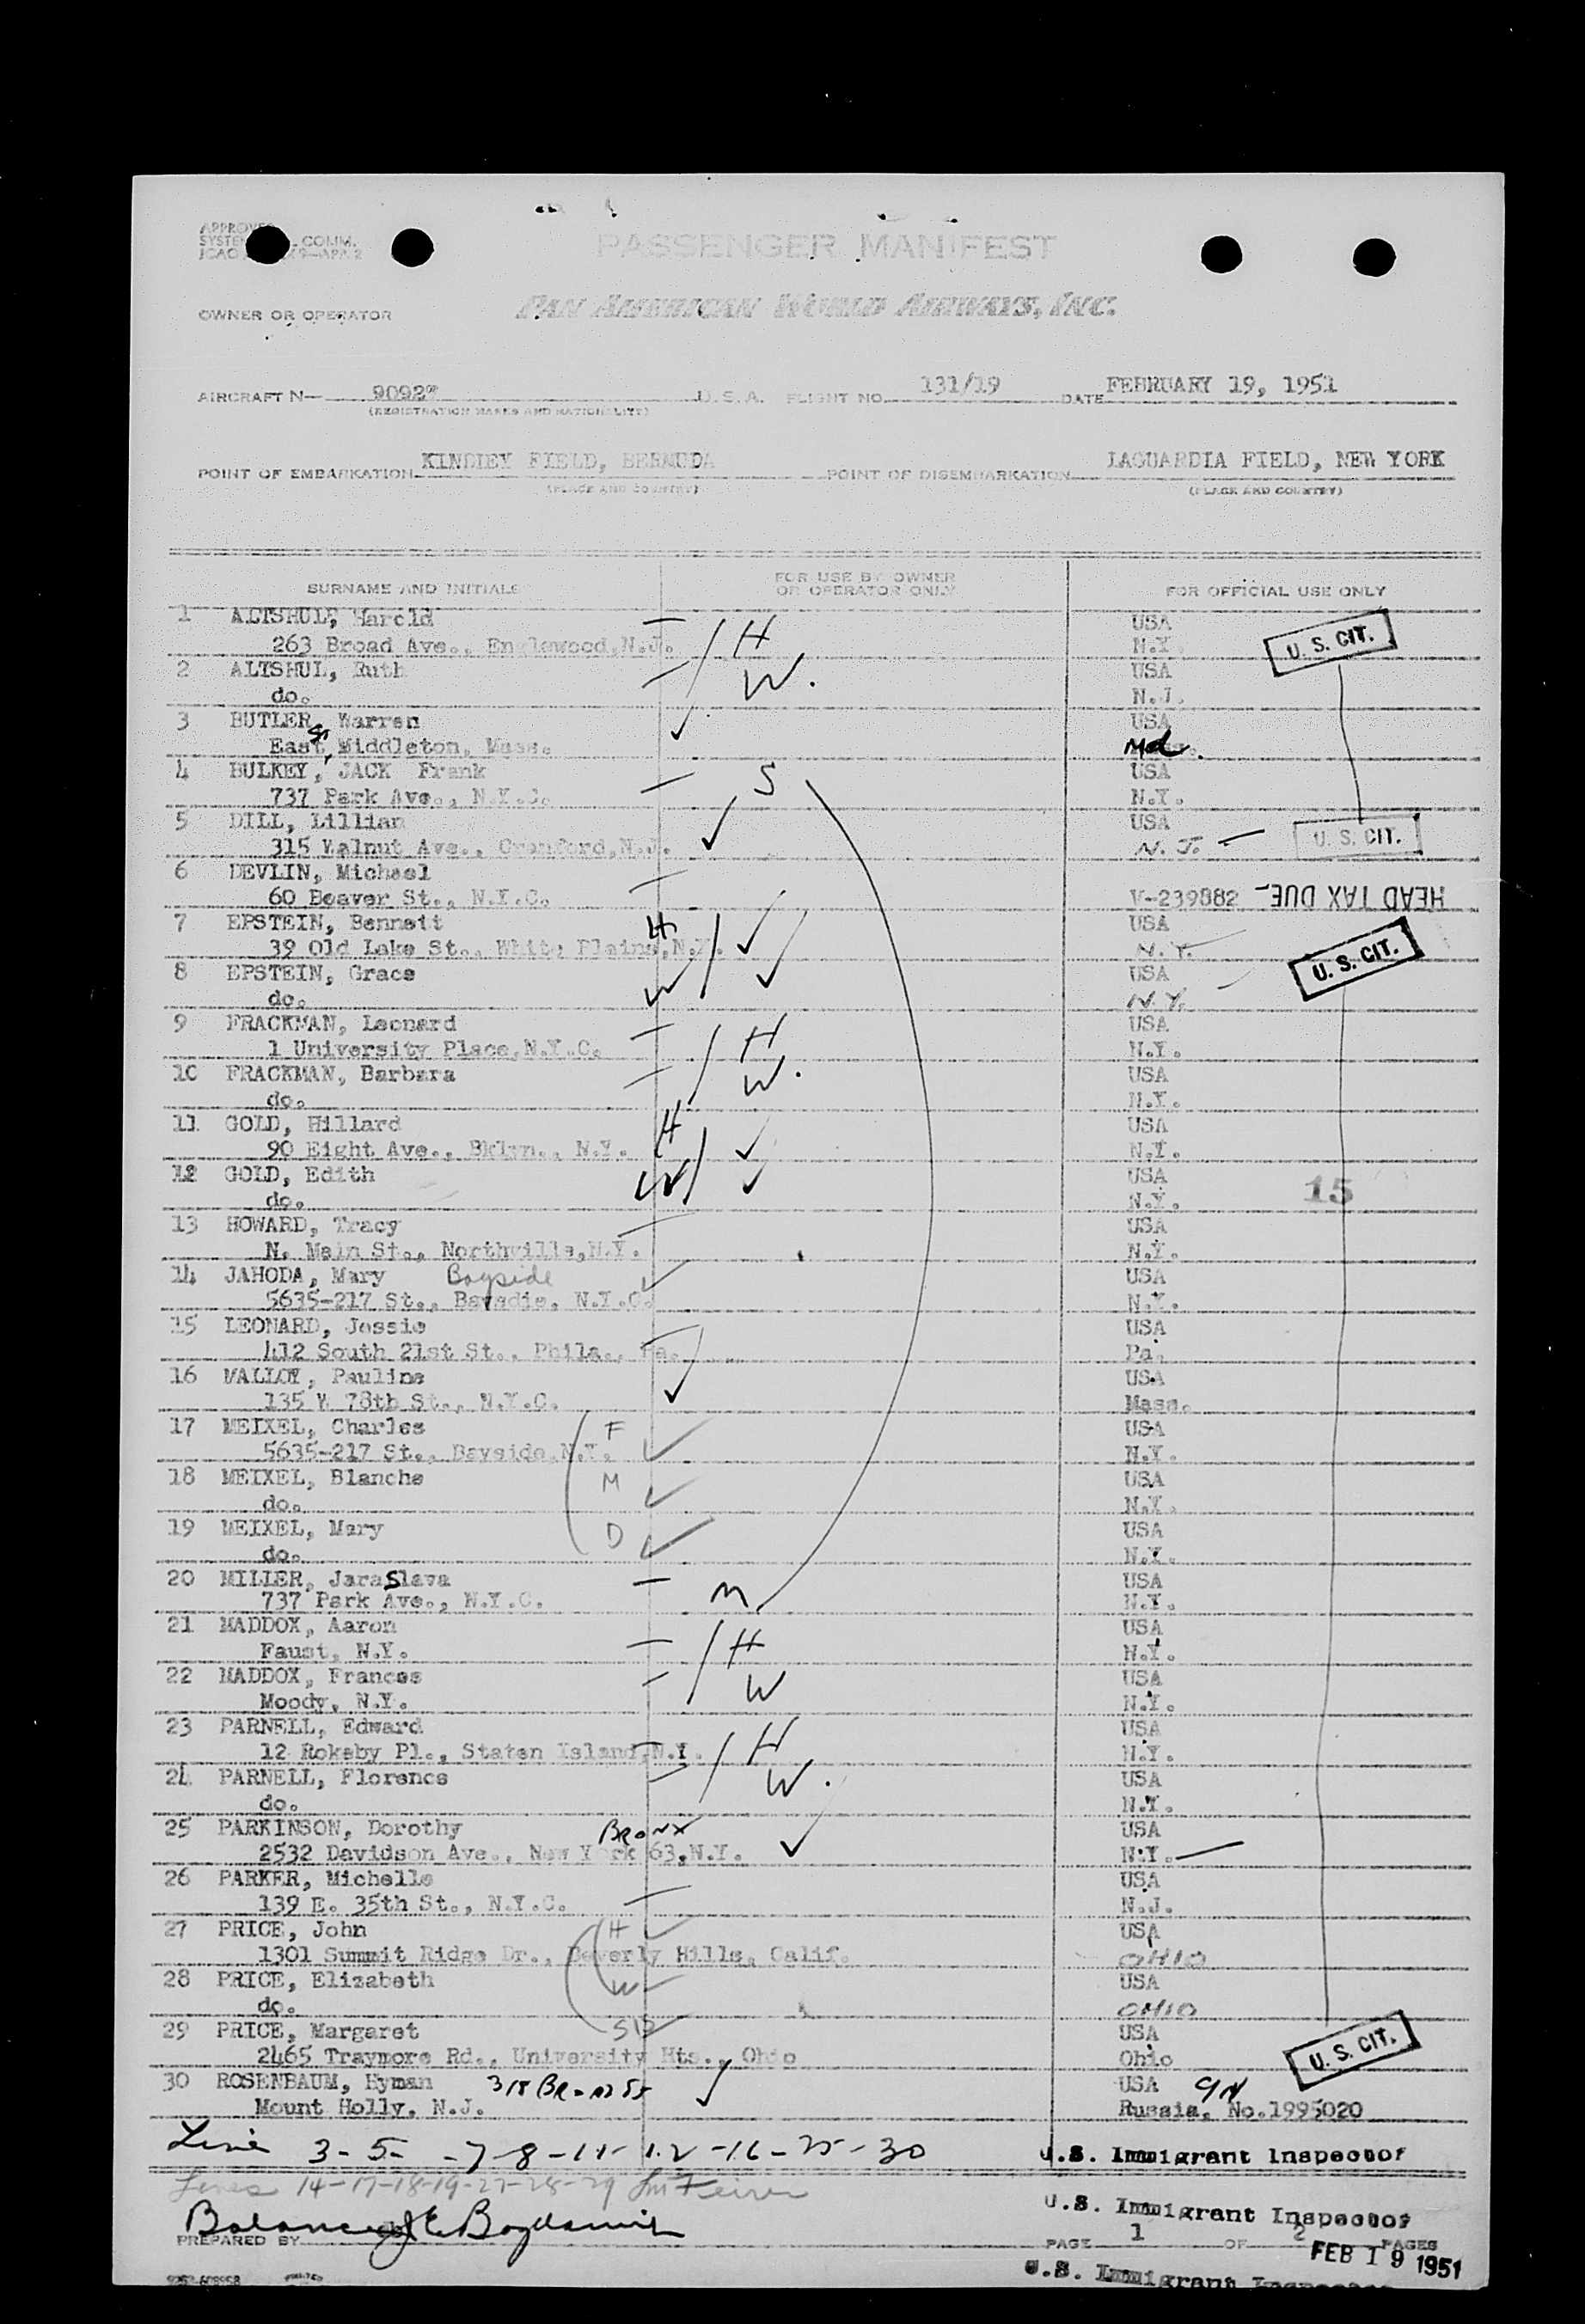 PASSENGER MANIFEST
OWNER OR OPERATOR PAN AMERICAN WORLD AIRWAYS, INC.
AIRCRAFT N— 90927 U.S.A. FLIGHT NO. 131/19 DATE FEBRUARY 19, 1951
(REGISTRATION MARKS AND NATIONALITY)
POINT OF EMBARKATION KINDLEY FIELD, BERMUDA POINT OF DISEMBARKATION LAGUARDIA FIELD, NEW YORK
(PLACE AND COUNTRY) (PLACE AND COUNTRY)
SURNAME AND INITIALS FOR USE BY OWNER OR OPERATOR ONLY FOR OFFICIAL USE ONLY
1 ALTSHUL, Harold H USA U. S. CIT.
263 Broad Ave., Englewood, N.J. N.Y.
2 ALTSHUL, Ruth W. USA
do. N.J.
3 BUTLER, Warren USA
East St, Middleton, Mass. Md.
4 BULKEY, JACK Frank S USA
737 Park Ave., N.Y.C. N.Y.
5 DILL, Lillian USA
315 Walnut Ave., Cranford, N.J. N. J. U. S. CIT.
6 DEVLIN, Michael
60 Beaver St., N.Y.C. V-239882 HEAD TAX DUE
7 EPSTEIN, Bennett H USA
39 Old Lake St., White Plains, N.Y. N.Y. U. S. CIT.
8 EPSTEIN, Grace W USA
do. N.Y.
9 FRACKMAN, Leonard H USA
1 University Place, N.Y.C. N.Y.
10 FRACKMAN, Barbara W. USA
do. N.Y.
11 GOLD, Hillard H USA
90 Eight Ave., Bklyn., N.Y. N.Y.
12 GOLD, Edith W USA
do. N.Y. 15
13 HOWARD, Tracy USA
N. Main St., Northville, N.Y. N.Y.
14 JAHODA, Mary Bayside USA
5635-217 St., Baysdie, N.Y.C. N.Y.
15 LEONARD, Jessie USA
412 South 21st St., Phila., Pa. Pa.
16 MALLOY, Pauline USA
135 W 78th St., N.Y.C. Mass.
17 MEIXEL, Charles F USA
5635-217 St., Bayside, N.Y. N.Y.
18 MEIXEL, Blanche M USA
do. N.Y.
19 MEIXEL, Mary D USA
do. N.Y.
20 MILLER, Jaraslava M USA
737 Park Ave., N.Y.C. N.Y.
21 MADDOX, Aaron H USA
Faust, N.Y. N.Y.
22 MADDOX, Frances W USA
Moody, N.Y. N.Y.
23 PARNELL, Edward H USA
12 Rokeby Pl., Staten Island, N.Y. N.Y.
24 PARNELL, Florence W. USA
do. N.Y.
25 PARKINSON, Dorothy BRONX USA
2532 Davidson Ave., New York 63, N.Y. N.Y.
26 PARKER, Michelle USA
139 E. 35th St., N.Y.C. N.J.
27 PRICE, John H USA
1301 Summit Ridge Dr., Beverly Hills, Calif. OHIO
28 PRICE, Elizabeth W USA
do. OHIO
29 PRICE, Margaret USA
2465 Traymore Rd., University Hts., Ohio Ohio U. S. CIT.
30 ROSENBAUM, Hyman USA
Mount Holly, N.J. Russia, No.1995020
Line 3-5-7-8-11-12-16-25-30 U.S. Immigrant Inspector
Lines 14-17-18-19-27-28-29
Balance U.S. Immigrant Inspector
PREPARED BY PAGE 1 OF 2 PAGES
FEB 19 1951
U.S. Immigrant Inspector